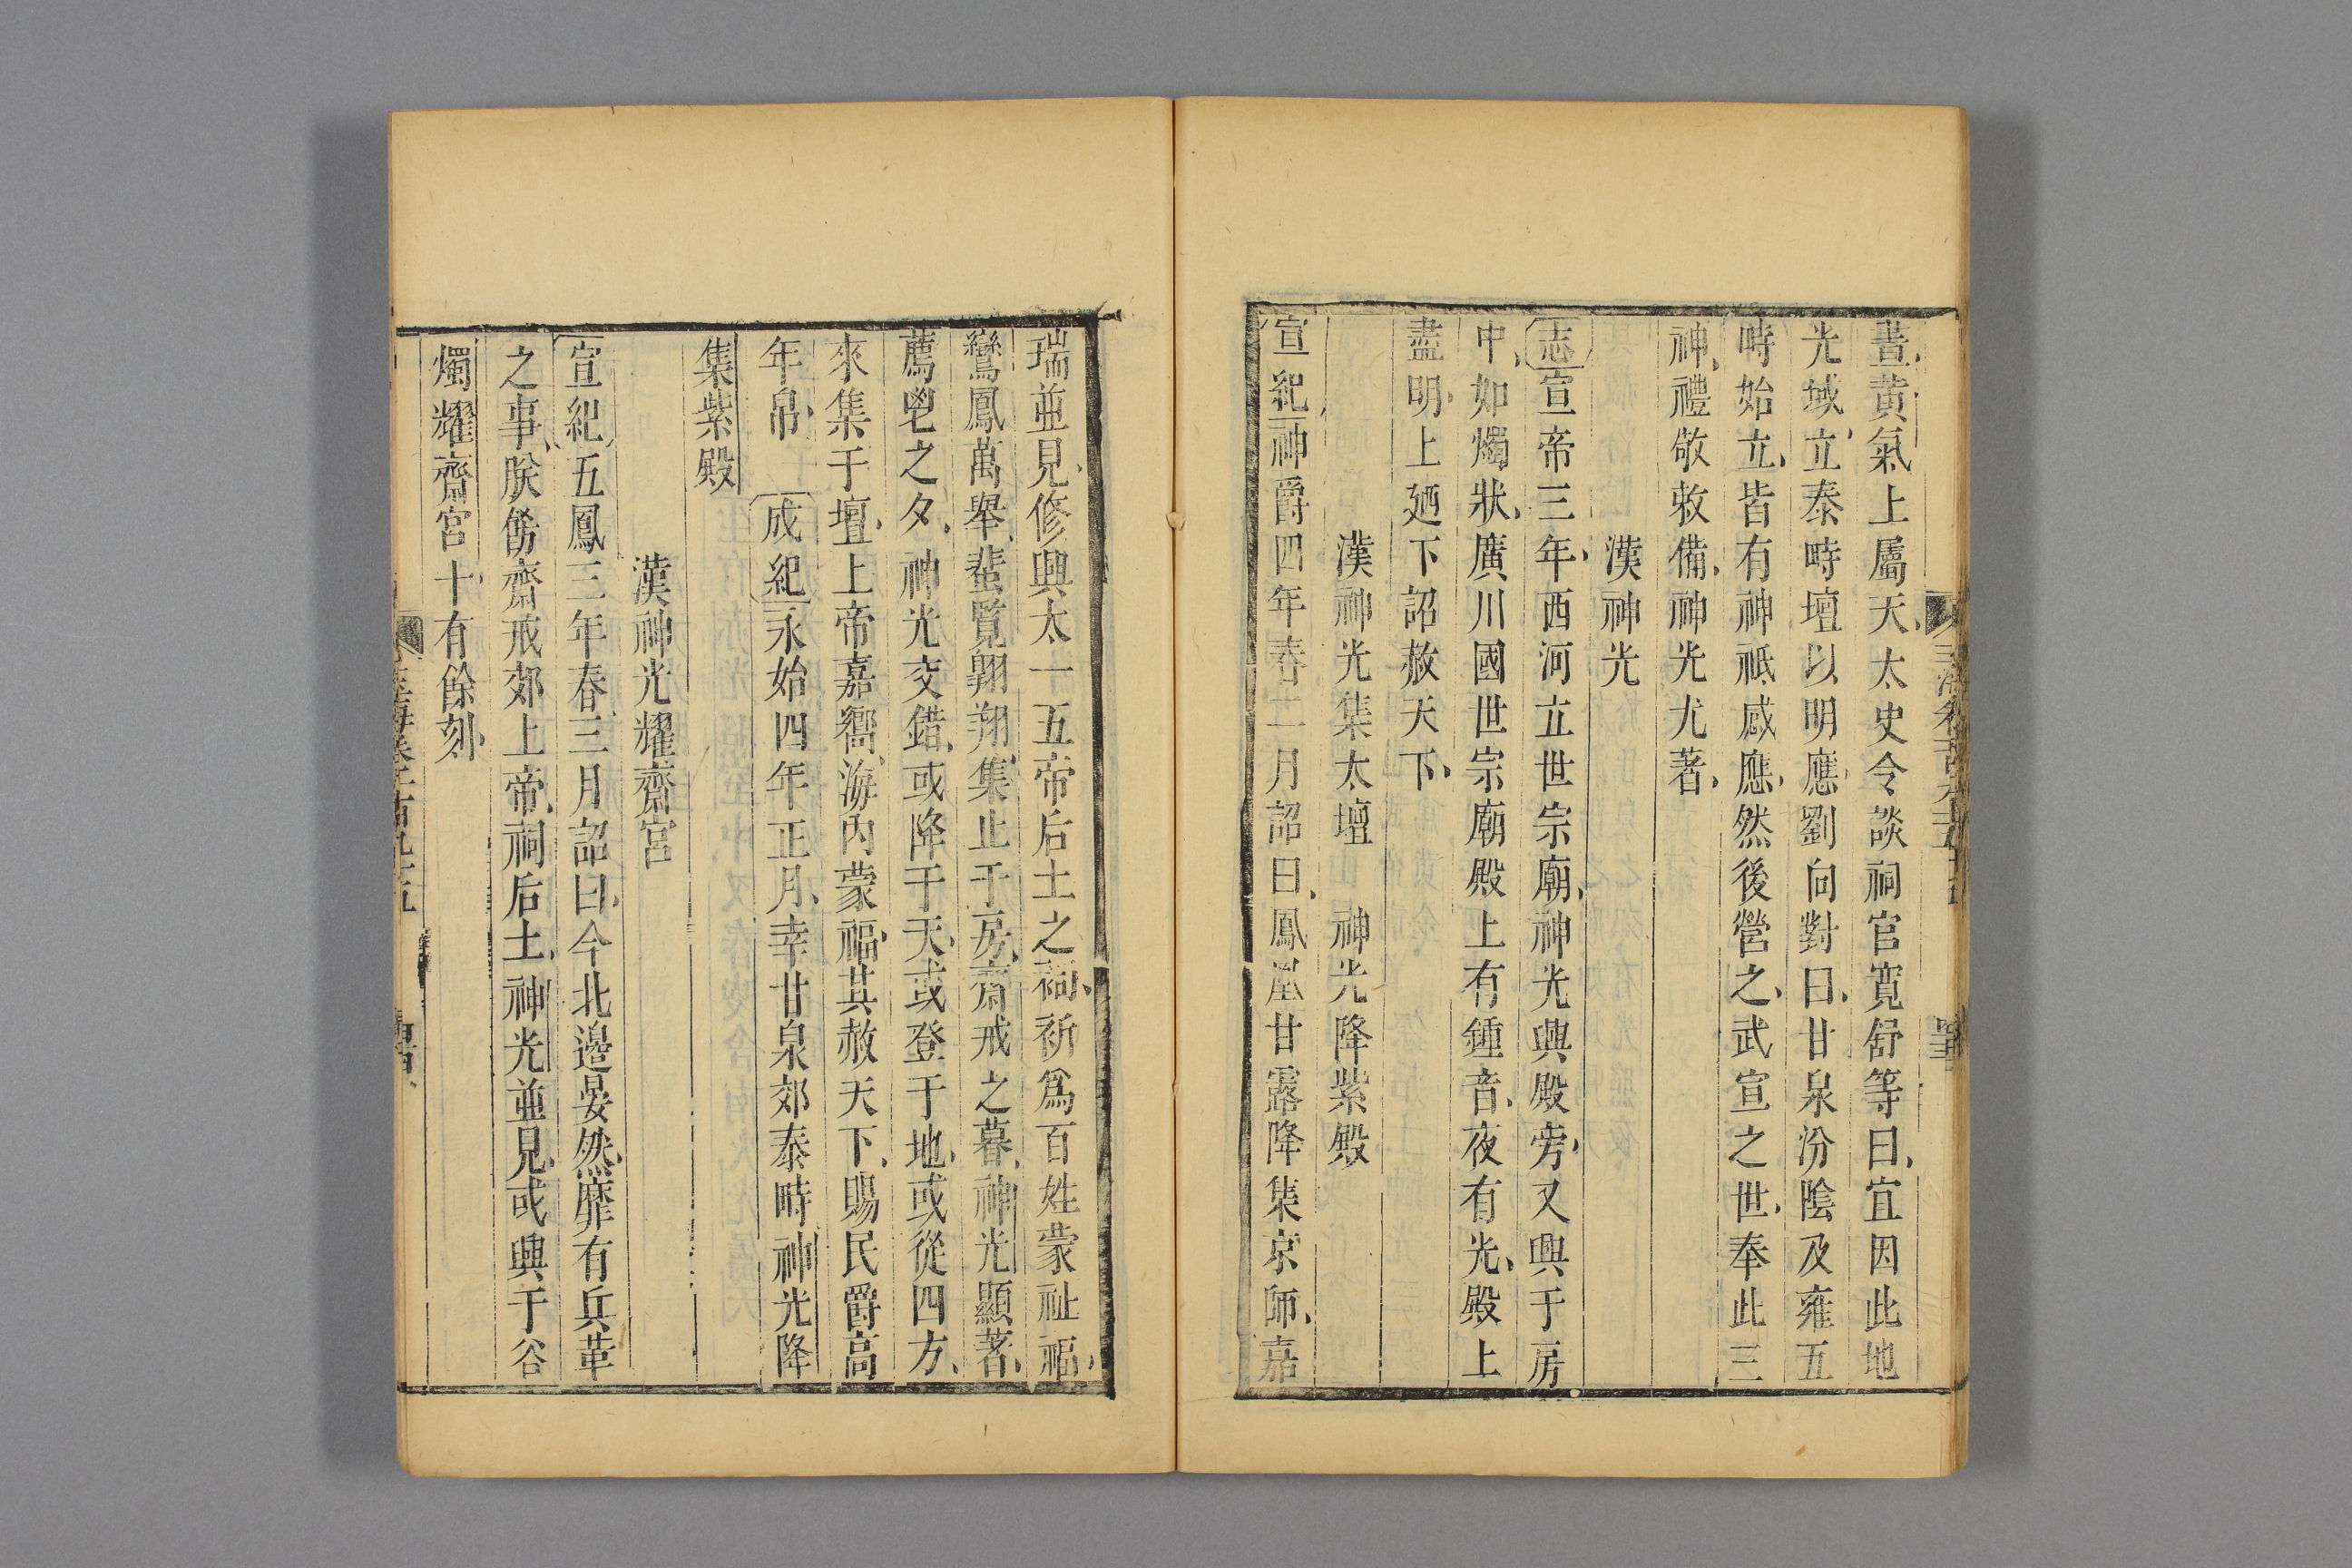 晝黄氣上屬天太史令談祠官寛舒等曰宜因此地
光域立泰畤壇以明應劉向對曰甘泉汾隂及雍五
畤始立皆有神祗感應然後營之武宣之世奉此三
神禮敬敕備神光尤著
漢神光
志宣帝三年西河立世宗廟神光興殿旁又興于房
中如燭狀廣川國世宗廟殿上有鍾音夜有光殿上
盡明上廼下詔赦天下
漢神光集太壇 神光降紫殿
宣紀神爵四年春二月詔曰鳳凰甘露降集京師嘉
瑞並見修興太一五帝后土之祠祈爲百姓蒙祉福
鸞鳳萬舉蜚覽翺翔集止于房齋戒之暮神光顯著
薦鬯之夕神光交錯或降于天或登于地或從四方
來集于壇上帝嘉嚮海内蒙福其赦天下賜民爵高
年帛 成紀永始四年正月幸甘泉郊泰畤神光降
集紫殿
漢神光耀齋宮
宣紀五鳳三年春三月詔曰今北邉晏然靡有兵革
之事朕飭齋戒郊上帝祠后土神光並見或興于谷
燭耀齋宮十有餘刻
玉海卷一百九十五